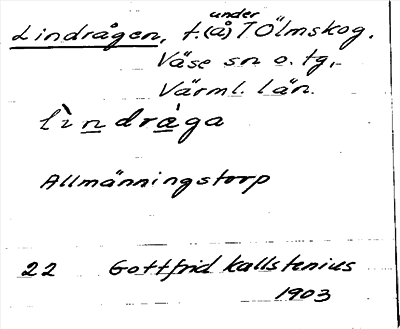 Lindrågen, t. (å) under TÖlmskog.
Väse sn o. tg,-
Värml. län.
lìndrȧga
Allmänningstorp
22 Gottfrid Kallstenius
1903